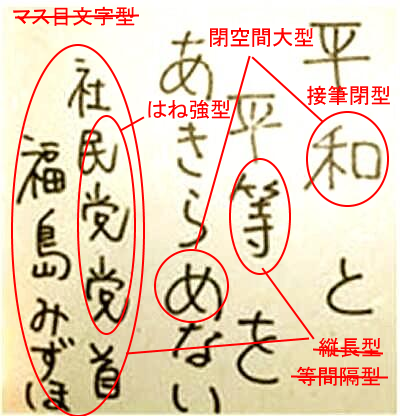 平和と
平等を
あきらめない
社民党党首
福島みずほ
マス目文字型
閉空間大型
接筆閉型
はね強型
縦長型
等間隔型